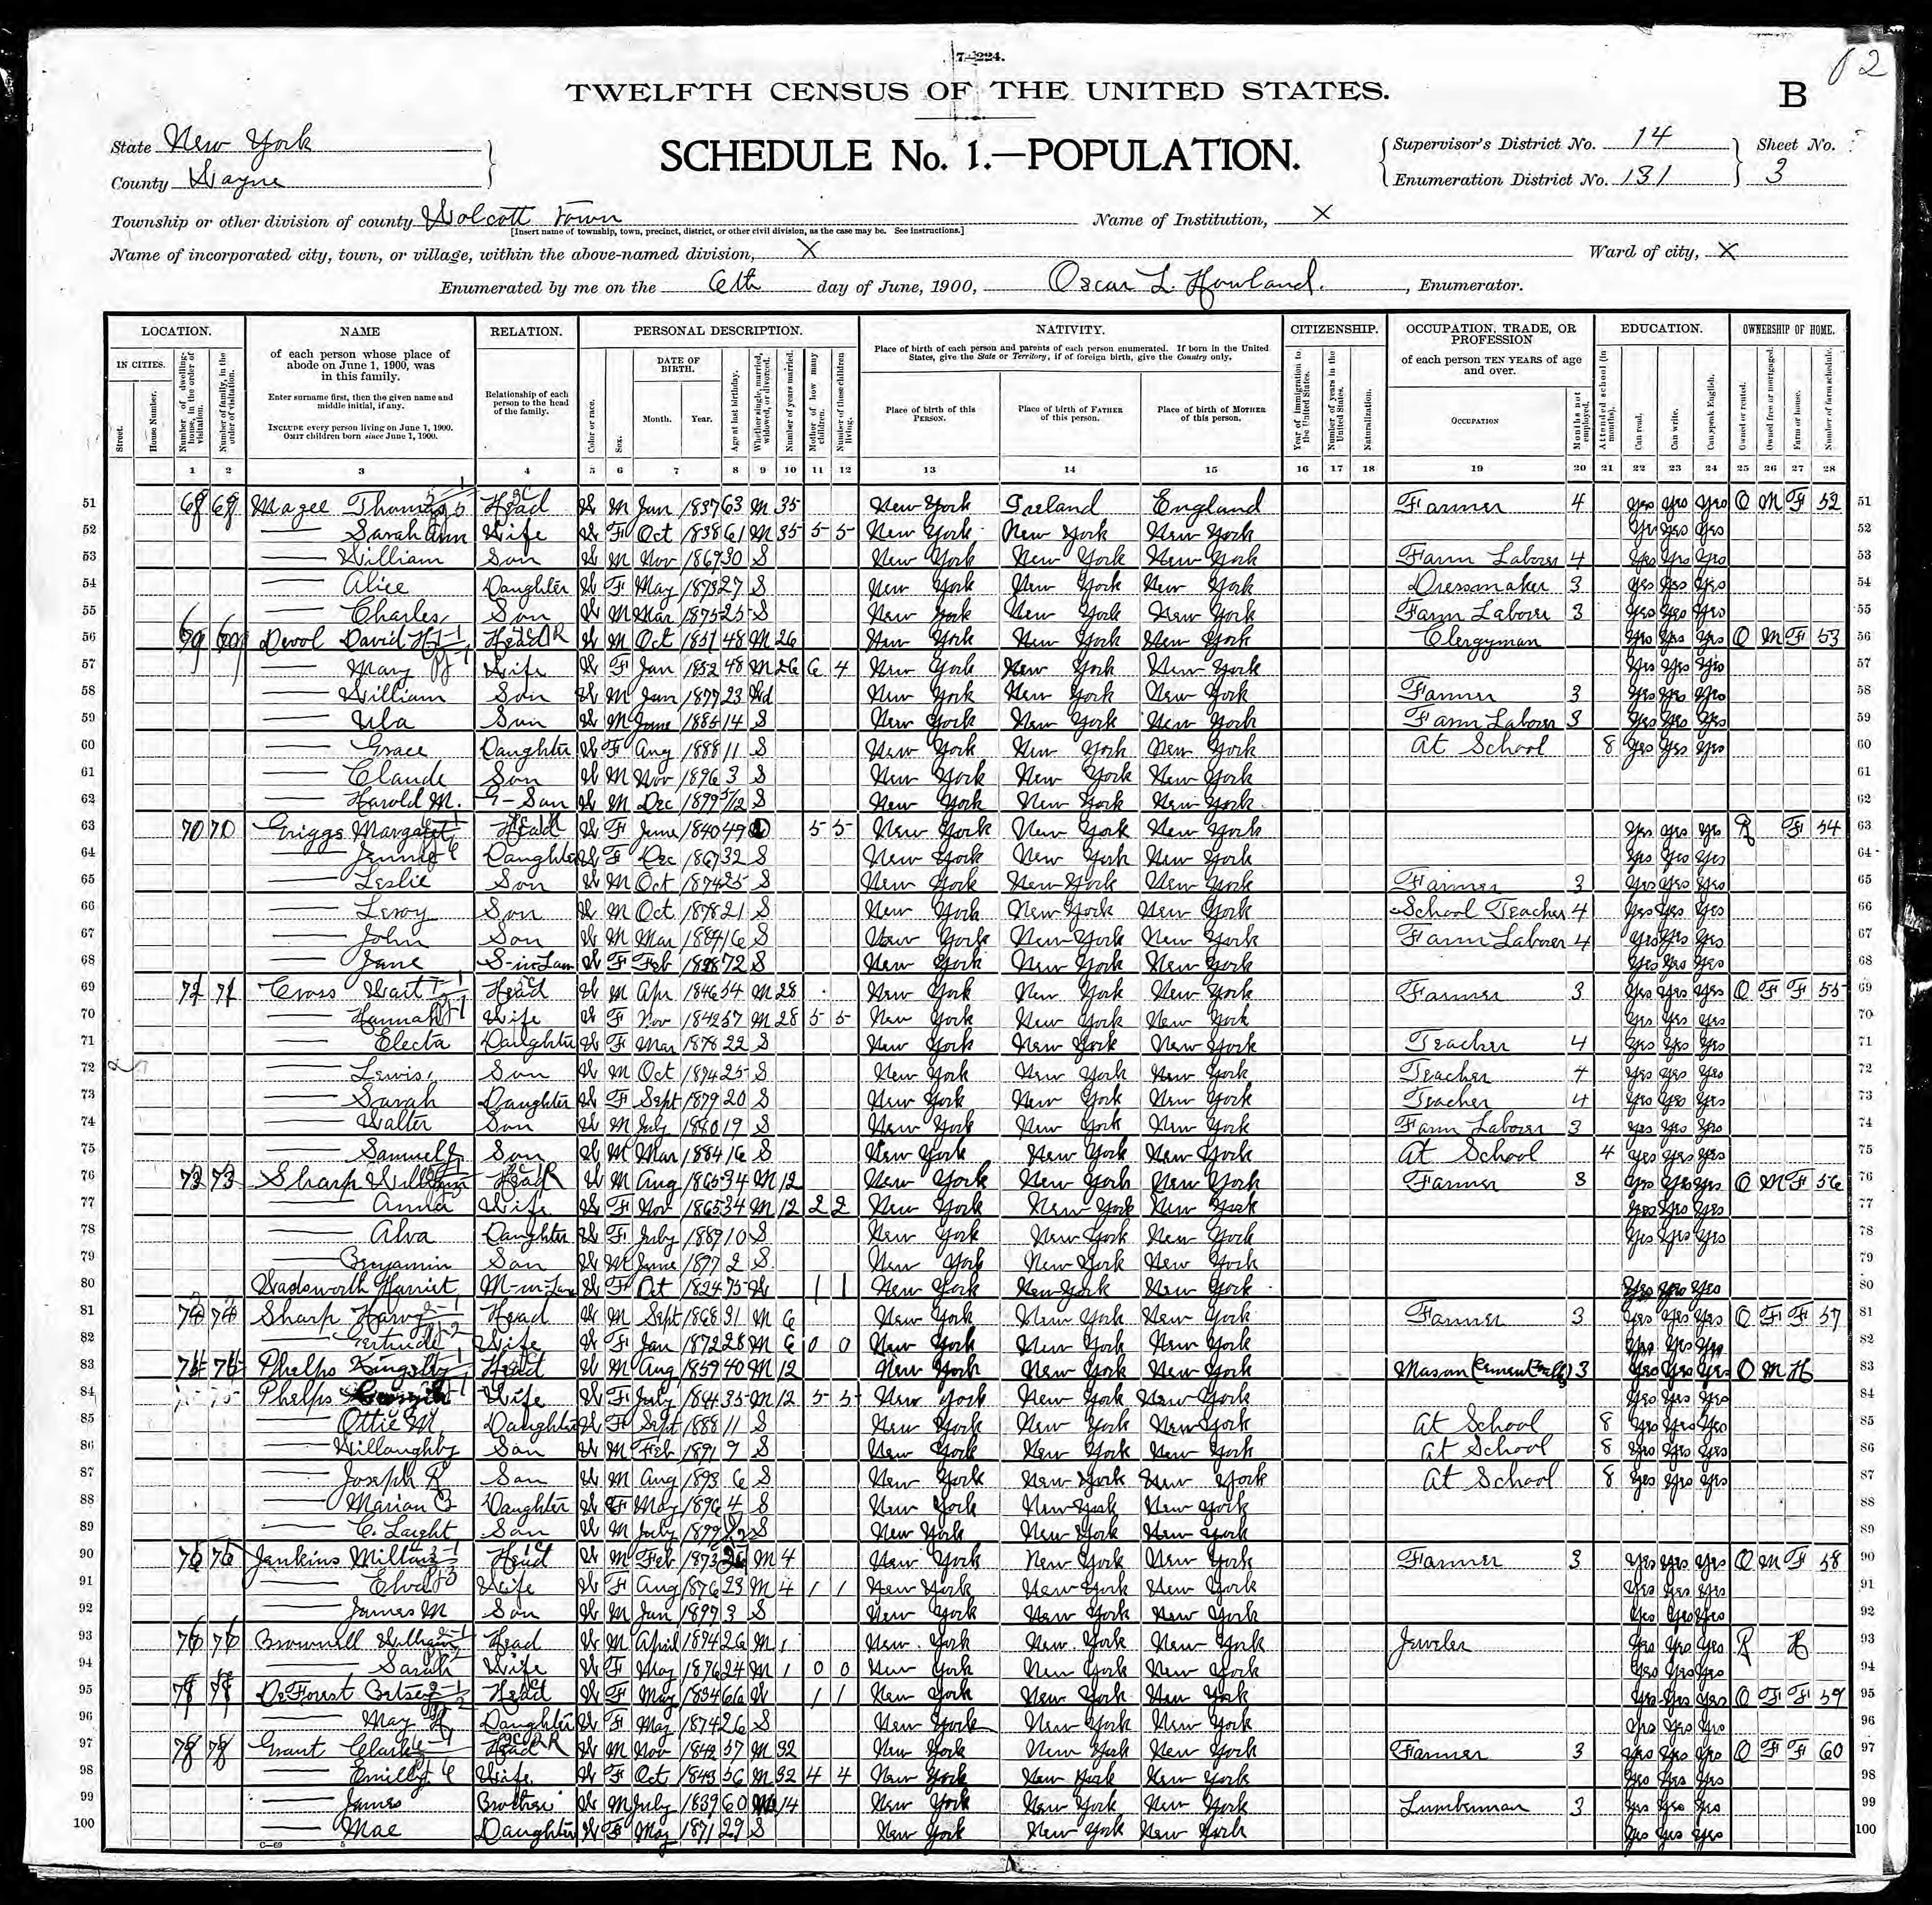 7-224.
B
TWELFTH CENSUS OF THE UNITED STATES.
SCHEDULE No. 1.—POPULATION.
State New York
County Wayne
Supervisor's District No. 14
Enumeration District No. 131
Sheet No.
3
Township or other division of county Wolcott Town
[Insert name of township, town, precinct, district, or other civil division, as the case may be. See instructions.]
Name of Institution, X
Name of incorporated city, town, or village, within the above-named division, X
Ward of city, X
Enumerated by me on the 6th day of June, 1900, Oscar L. Howland. , Enumerator.
LOCATION. NAME RELATION. PERSONAL DESCRIPTION. NATIVITY. CITIZENSHIP. OCCUPATION, TRADE, OR PROFESSION EDUCATION. OWNERSHIP OF HOME.
IN CITIES.
Street.
House Number.
Number of dwelling-house, in the order of visitation.
Number of family, in the order of visitation.
of each person whose place of abode on June 1, 1900, was in this family.
Enter surname first, then the given name and middle initial, if any.
INCLUDE every person living on June 1, 1900.
OMIT children born since June 1, 1900.
Relationship of each person to the head of the family.
Color or race.
Sex.
DATE OF BIRTH.
Month. Year.
Age at last birthday.
Whether single, married, widowed, or divorced.
Number of years married.
Mother of how many children.
Number of these children living.
Place of birth of each person and parents of each person enumerated. If born in the United States, give the State or Territory; if of foreign birth, give the Country only.
Place of birth of this PERSON.
Place of birth of FATHER of this person.
Place of birth of MOTHER of this person.
Year of immigration to the United States.
Number of years in the United States.
Naturalization.
of each person TEN YEARS of age and over.
OCCUPATION
Months not employed.
Attended school (in months).
Can read.
Can write.
Can speak English.
Owned or rented.
Owned free or mortgaged.
Farm or house.
Number of farm schedule.
1 2 3 4 5 6 7 8 9 10 11 12 13 14 15 16 17 18 19 20 21 22 23 24 25 26 27 28
51 68 68 Magee Thomas Head W M Jan 1837 63 M 35 New York Ireland England Farmer 4 Yes Yes Yes O M F 52 51
52 Sarah Ann Wife W F Oct 1838 61 M 35 5 5 New York New York New York Yes Yes Yes 52
53 William Son W M Nov 30 S New York New York New York Farm Laborer 4 Yes Yes Yes 53
54 Alice Daughter W F May 1873 27 S New York New York New York Dressmaker 3 Yes Yes Yes 54
55 Charles Son W M Mar 1875 25 S New York New York New York Farm Laborer 3 Yes Yes Yes 55
56 69 69 Devol David H Head W M Oct 1851 48 M 26 New York New York New York Clergyman Yes Yes Yes O M F 53 56
57 Mary Wife W F Jan 1852 48 M 26 6 4 New York New York New York Yes Yes Yes 57
58 William Son W M Jan 1877 23 Wd New York New York New York Farmer 3 Yes Yes Yes 58
59 Son W M June 1885 14 S New York New York New York Farm Laborer 3 Yes Yes Yes 59
60 Grace Daughter W F Aug 1888 11 S New York New York New York At School 8 Yes Yes Yes 60
61 Claude Son W M Nov 1896 3 S New York New York New York 61
62 Harold M. G-Son W M Dec 1899 5/12 S New York New York New York 62
63 70 70 Griggs Margaret Head W F June 1840 49 5 5 New York New York New York Yes Yes Yes R F 54 63
64 Jennie E Daughter W F Dec 1867 32 S New York New York New York Yes Yes Yes 64
65 Leslie Son W M Oct 1874 25 S New York New York New York Farmer 3 Yes Yes Yes 65
66 Leroy Son W M Oct 1878 21 S New York New York New York School Teacher 4 Yes Yes Yes 66
67 John Son W M Mar 1884 16 S New York New York New York Farm Laborer 4 Yes Yes Yes 67
68 Jane S-in-Law W F Feb 1828 72 S New York New York New York Yes Yes Yes 68
69 71 71 Cross Wait Head W M Apr 1846 54 M 28 New York New York New York Farmer 3 Yes Yes Yes O F F 55 69
70 Hannah Wife W F Nov 1842 57 M 28 5 5 New York New York New York Yes Yes Yes 70
71 Electa Daughter W F Mar 1878 22 S New York New York New York Teacher 4 Yes Yes Yes 71
72 Lewis Son W M Oct 1874 25 S New York New York New York Teacher 4 Yes Yes Yes 72
73 Sarah Daughter W F Sept 1879 20 S New York New York New York Teacher 4 Yes Yes Yes 73
74 Walter Son W M July 1880 19 S New York New York New York Farm Laborer 3 Yes Yes Yes 74
75 Samuel Son W M Mar 1884 16 S New York New York New York At School 4 Yes Yes Yes 75
76 73 73 Sharp William Head W M Aug 1865 34 M 12 New York New York New York Farmer 3 Yes Yes Yes O M F 56 76
77 Anna Wife W F Nov 1865 34 M 12 2 2 New York New York New York Yes Yes Yes 77
78 Alva Daughter W F July 1889 10 S New York New York New York Yes Yes Yes 78
79 Benjamin Son W M June 1897 2 S New York New York New York 79
80 Wadsworth Harriet M-in-Law W F Oct 1824 75 W 1 1 New York New York New York Yes Yes Yes 80
81 74 74 Sharp Harvey Head W M Sept 1868 31 M 6 New York New York New York Farmer 3 Yes Yes Yes O F F 57 81
82 Gertrude Wife W F Jan 1872 28 M 6 0 0 New York New York New York Yes Yes Yes 82
83 75 75 Phelps Kingsley Head W M Aug 1859 40 M 12 New York New York New York Mason 3 Yes Yes Yes O M H 83
84 Phelps Wife W F July 1864 35 M 12 5 5 New York New York New York Yes Yes Yes 84
85 Ottie M. Daughter W F Sept 1888 11 S New York New York New York At School 8 Yes Yes Yes 85
86 Willoughby Son W M Feb 1891 9 S New York New York New York At School 8 Yes Yes Yes 86
87 Joseph R Son W M Aug 1893 6 S New York New York New York At School 8 Yes Yes Yes 87
88 Marian B Daughter W F May 1896 4 S New York New York New York 88
89 C. Laight Son W M July 1899 S New York New York New York 89
90 76 76 Jenkins Head W M Feb 1873 M 4 New York New York New York Farmer 3 Yes Yes Yes O M F 58 90
91 Wife W F Aug 1876 23 M 4 1 1 New York New York New York Yes Yes Yes 91
92 James M Son W M Jan 1897 3 S New York New York New York Yes Yes Yes 92
93 76 76 Brownell William Head W M April 1874 26 M 1 New York New York New York Jeweler Yes Yes Yes R H 93
94 Sarah Wife W F May 1876 24 M 1 0 0 New York New York New York Yes Yes Yes 94
95 DeForest Betsey Head W F May 1834 66 W 1 1 New York New York New York Yes Yes Yes O F F 59 95
96 May Daughter W F May 1874 26 S New York New York New York Yes Yes Yes 96
97 78 78 Grant Clark Head W M Nov 1842 57 M 32 New York New York New York Farmer 3 Yes Yes Yes O F F 60 97
98 Emily E Wife W F Oct 1843 56 M 32 4 4 New York New York New York Yes Yes Yes 98
99 James Brother W M July 1839 60 14 New York New York New York Lumberman 3 Yes Yes Yes 99
100 Mae Daughter W F May 1871 29 S New York New York New York Yes Yes Yes 100